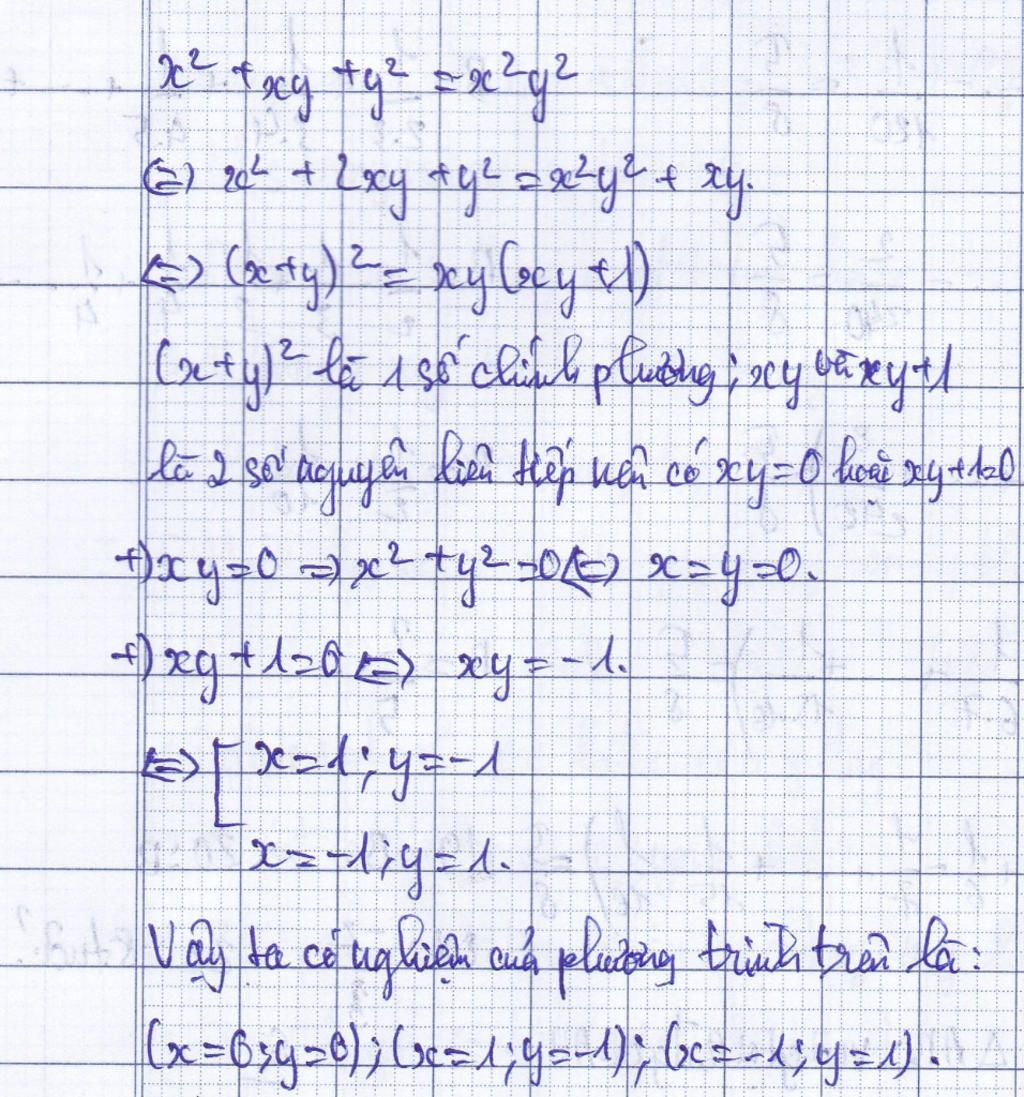 x² + xy + y² = x²y²
⇔ x² + 2xy + y² = x²y² + xy.
⇔ (x+y)² = xy(xy+1)
(x+y)² là 1 số chính phương; xy và xy+1
là 2 số nguyên liên tiếp nên có xy=0 hoặc xy+1=0
+) xy=0 ⇒ x² + y² = 0 ⇔ x=y=0.
+) xy+1=0 ⇔ xy=-1.
⇔ [ x=1; y=-1
x=-1; y=1.
Vậy ta có nghiệm của phương trình trên là:
(x=0; y=0); (x=1; y=-1); (x=-1; y=1).